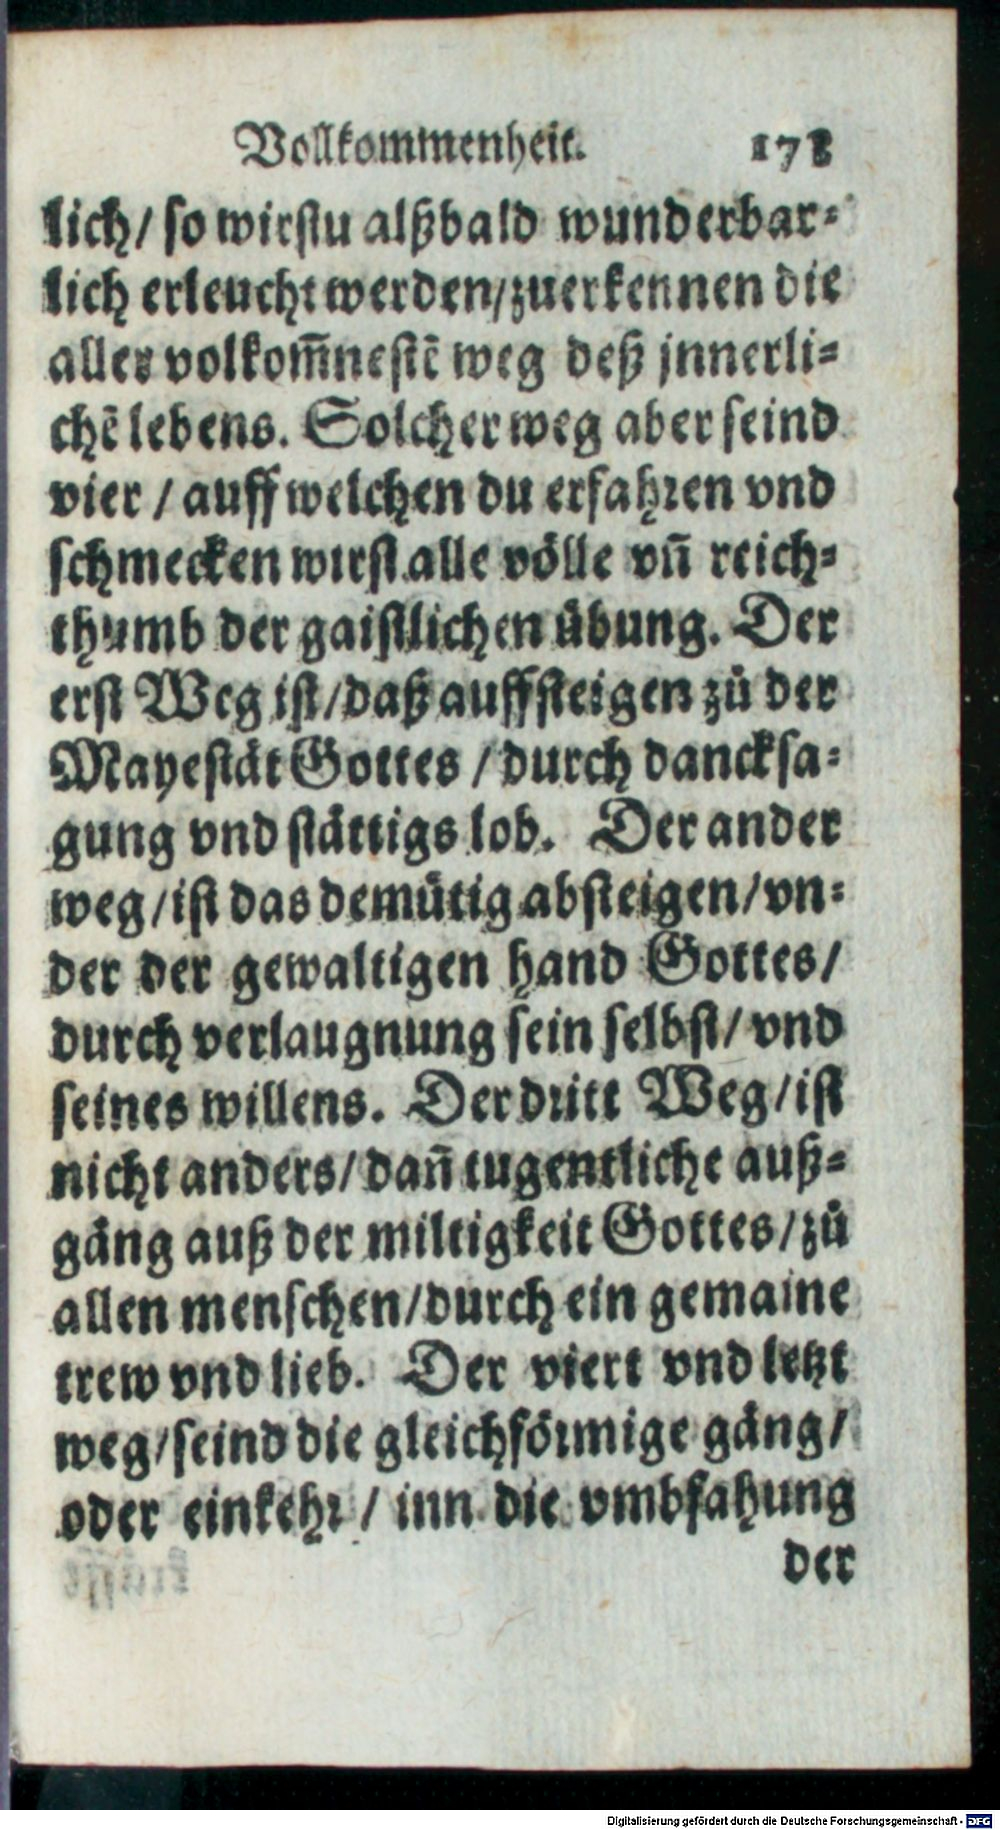 Vollkommenheit. 178
lich/ so wirstu alßbald wunderbar⸗
lich erleucht werden/zuerkennen die
aller volkom̄nestē weg deß jnnerli⸗
chē lebens. Solcher weg aber seind
vier / auff welchen du erfahren vnd
schmecken wirst alle völle vn̄ reich⸗
thumb der gaistlichen übung. Der
erst Weg ist/daß auffsteigen zů der
Mayestät Gottes / durch dancksa⸗
gung vnd stättigs lob. Der ander
weg/ist das demütig absteigen/vn⸗
der der gewaltigen hand Gottes/
durch verlaugnung sein selbst/ vnd
seines willens. Der dritt Weg/ist
nicht anders/dan̄ tugentliche auß⸗
gäng auß der miltigkeit Gottes/zů
allen menschen/durch ein gemaine
trew vnd lieb. Der viert vnd letzt
weg/seind die gleichförmige gäng/
oder einkehr / inn die vmbfahung
der
Digitalisierung gefördert durch die Deutsche Forschungsgemeinschaft - DFG